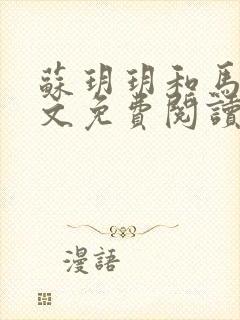 蘇玥玥和馬
文免費閱讀
漫語